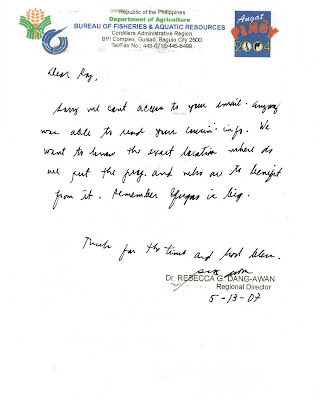 Republic of the Philippines
Department of Agriculture
BUREAU OF FISHERIES & AQUATIC RESOURCES
Cordillera Administrative Region
BPI Complex, Guisad, Baguio City 2600
Tel/Fax No.: 443-6716/445-8499
Angat
PINOY
2004
Dear Ray,
Sorry we cant access to your email. Anyway
was able to read your cousin' info. We
want to know the exact location where do
we put the proj. and who are to benefit
from it. Remember Ifugao is big.
Thanks for the time and God bless.
Dr. REBECCA G. DANG-AWAN
Regional Director
5-13-07